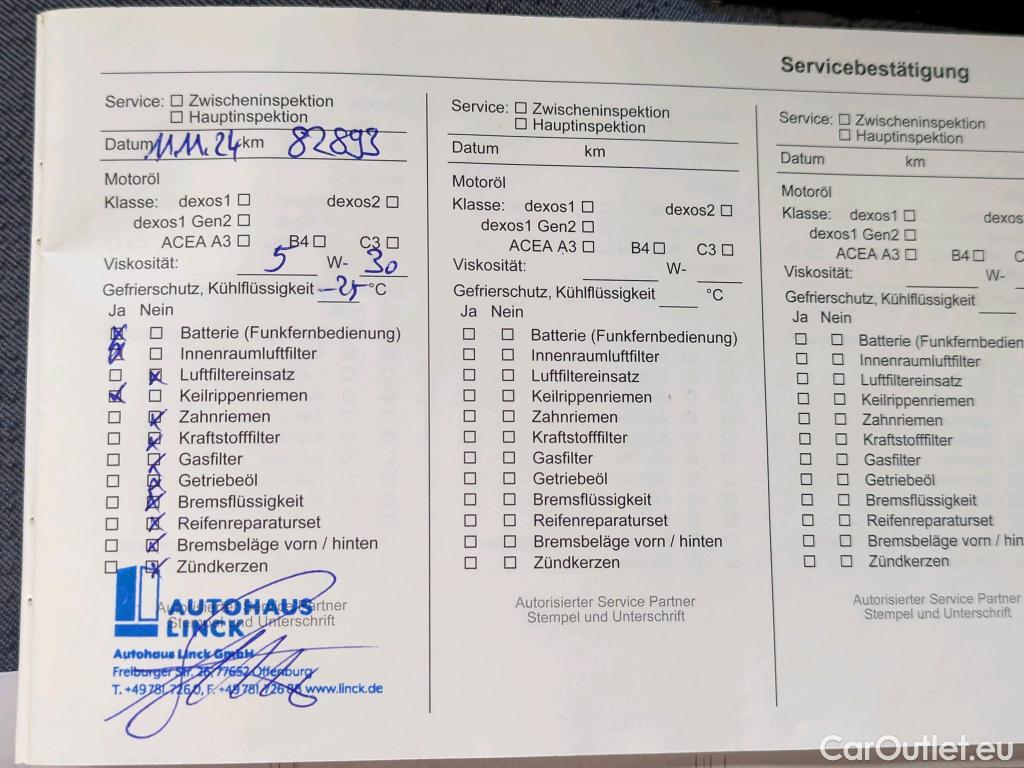 Servicebestätigung
Service: ☐ Zwischeninspektion
☐ Hauptinspektion
Datum 11.11.24 km 82893
Motoröl
Klasse: dexos1 ☐ dexos2 ☐
dexos1 Gen2 ☐
ACEA A3 ☐ B4 ☐ C3 ☐
Viskosität: 5 W- 30
Gefrierschutz, Kühlflüssigkeit -25 °C
Ja Nein
☒ ☐ Batterie (Funkfernbedienung)
☒ ☐ Innenraumluftfilter
☐ ☒ Luftfiltereinsatz
☒ ☐ Keilrippenriemen
☐ ☒ Zahnriemen
☐ ☒ Kraftstofffilter
☐ ☒ Gasfilter
☐ ☒ Getriebeöl
☐ ☒ Bremsflüssigkeit
☐ ☒ Reifenreparaturset
☐ ☒ Bremsbeläge vorn / hinten
☐ ☒ Zündkerzen
Autorisierter Service Partner
Stempel und Unterschrift
AUTOHAUS
LINCK
Autohaus Linck GmbH
Freiburger Str. 26, 77652 Offenburg
T. +49 781 726 0, F. +49 781 726 88 www.linck.de
Service: ☐ Zwischeninspektion
☐ Hauptinspektion
Datum km
Motoröl
Klasse: dexos1 ☐ dexos2 ☐
dexos1 Gen2 ☐
ACEA A3 ☐ B4 ☐ C3 ☐
Viskosität: W-
Gefrierschutz, Kühlflüssigkeit °C
Ja Nein
☐ ☐ Batterie (Funkfernbedienung)
☐ ☐ Innenraumluftfilter
☐ ☐ Luftfiltereinsatz
☐ ☐ Keilrippenriemen
☐ ☐ Zahnriemen
☐ ☐ Kraftstofffilter
☐ ☐ Gasfilter
☐ ☐ Getriebeöl
☐ ☐ Bremsflüssigkeit
☐ ☐ Reifenreparaturset
☐ ☐ Bremsbeläge vorn / hinten
☐ ☐ Zündkerzen
Autorisierter Service Partner
Stempel und Unterschrift
Service: ☐ Zwischeninspektion
☐ Hauptinspektion
Datum km
Motoröl
Klasse: dexos1 ☐ dexos
dexos1 Gen2 ☐
ACEA A3 ☐ B4 ☐ C
Viskosität: W-
Gefrierschutz, Kühlflüssigkeit
Ja Nein
☐ ☐ Batterie (Funkfernbedien
☐ ☐ Innenraumluftfilter
☐ ☐ Luftfiltereinsatz
☐ ☐ Keilrippenriemen
☐ ☐ Zahnriemen
☐ ☐ Kraftstofffilter
☐ ☐ Gasfilter
☐ ☐ Getriebeöl
☐ ☐ Bremsflüssigkeit
☐ ☐ Reifenreparaturset
☐ ☐ Bremsbeläge vorn / hinten
☐ ☐ Zündkerzen
Autorisierter Service Partner
Stempel und Unterschrift
CarOutlet.eu